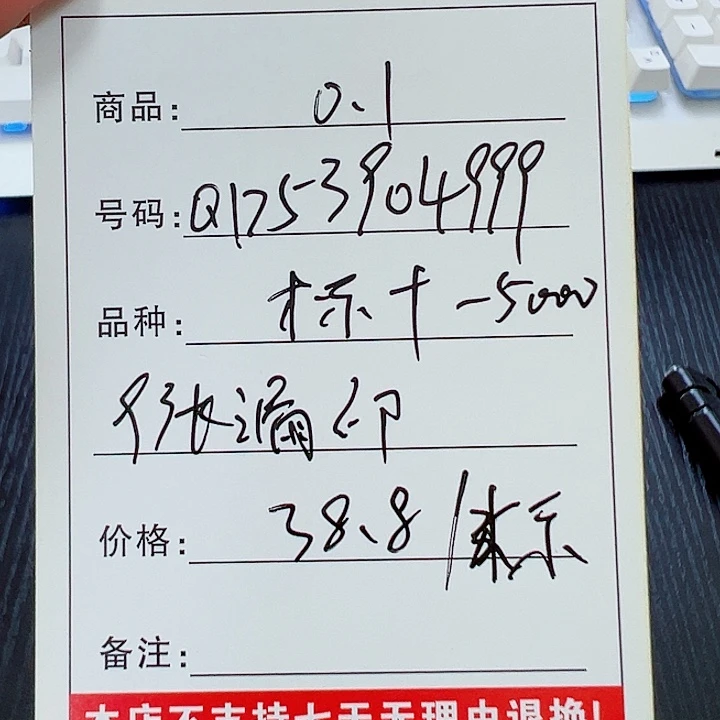 商品: 0.1
号码: Q1753904999
品种: 标十-5000
9张漏印
价格: 38.8/标
备注:
本店不支持七天无理由退换!